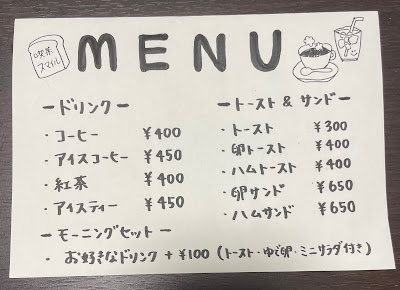 喫茶
スマイル
MENU
ードリンクー
・コーヒー ¥400
・アイスコーヒー ¥450
・紅茶 ¥400
・アイスティー ¥450
ートースト & サンドー
・トースト ¥300
・卵トースト ¥400
・ハムトースト ¥400
・卵サンド ¥650
・ハムサンド ¥650
ーモーニングセットー
・お好きなドリンク + ¥100 (トースト・ゆで卵・ミニサラダ付き)